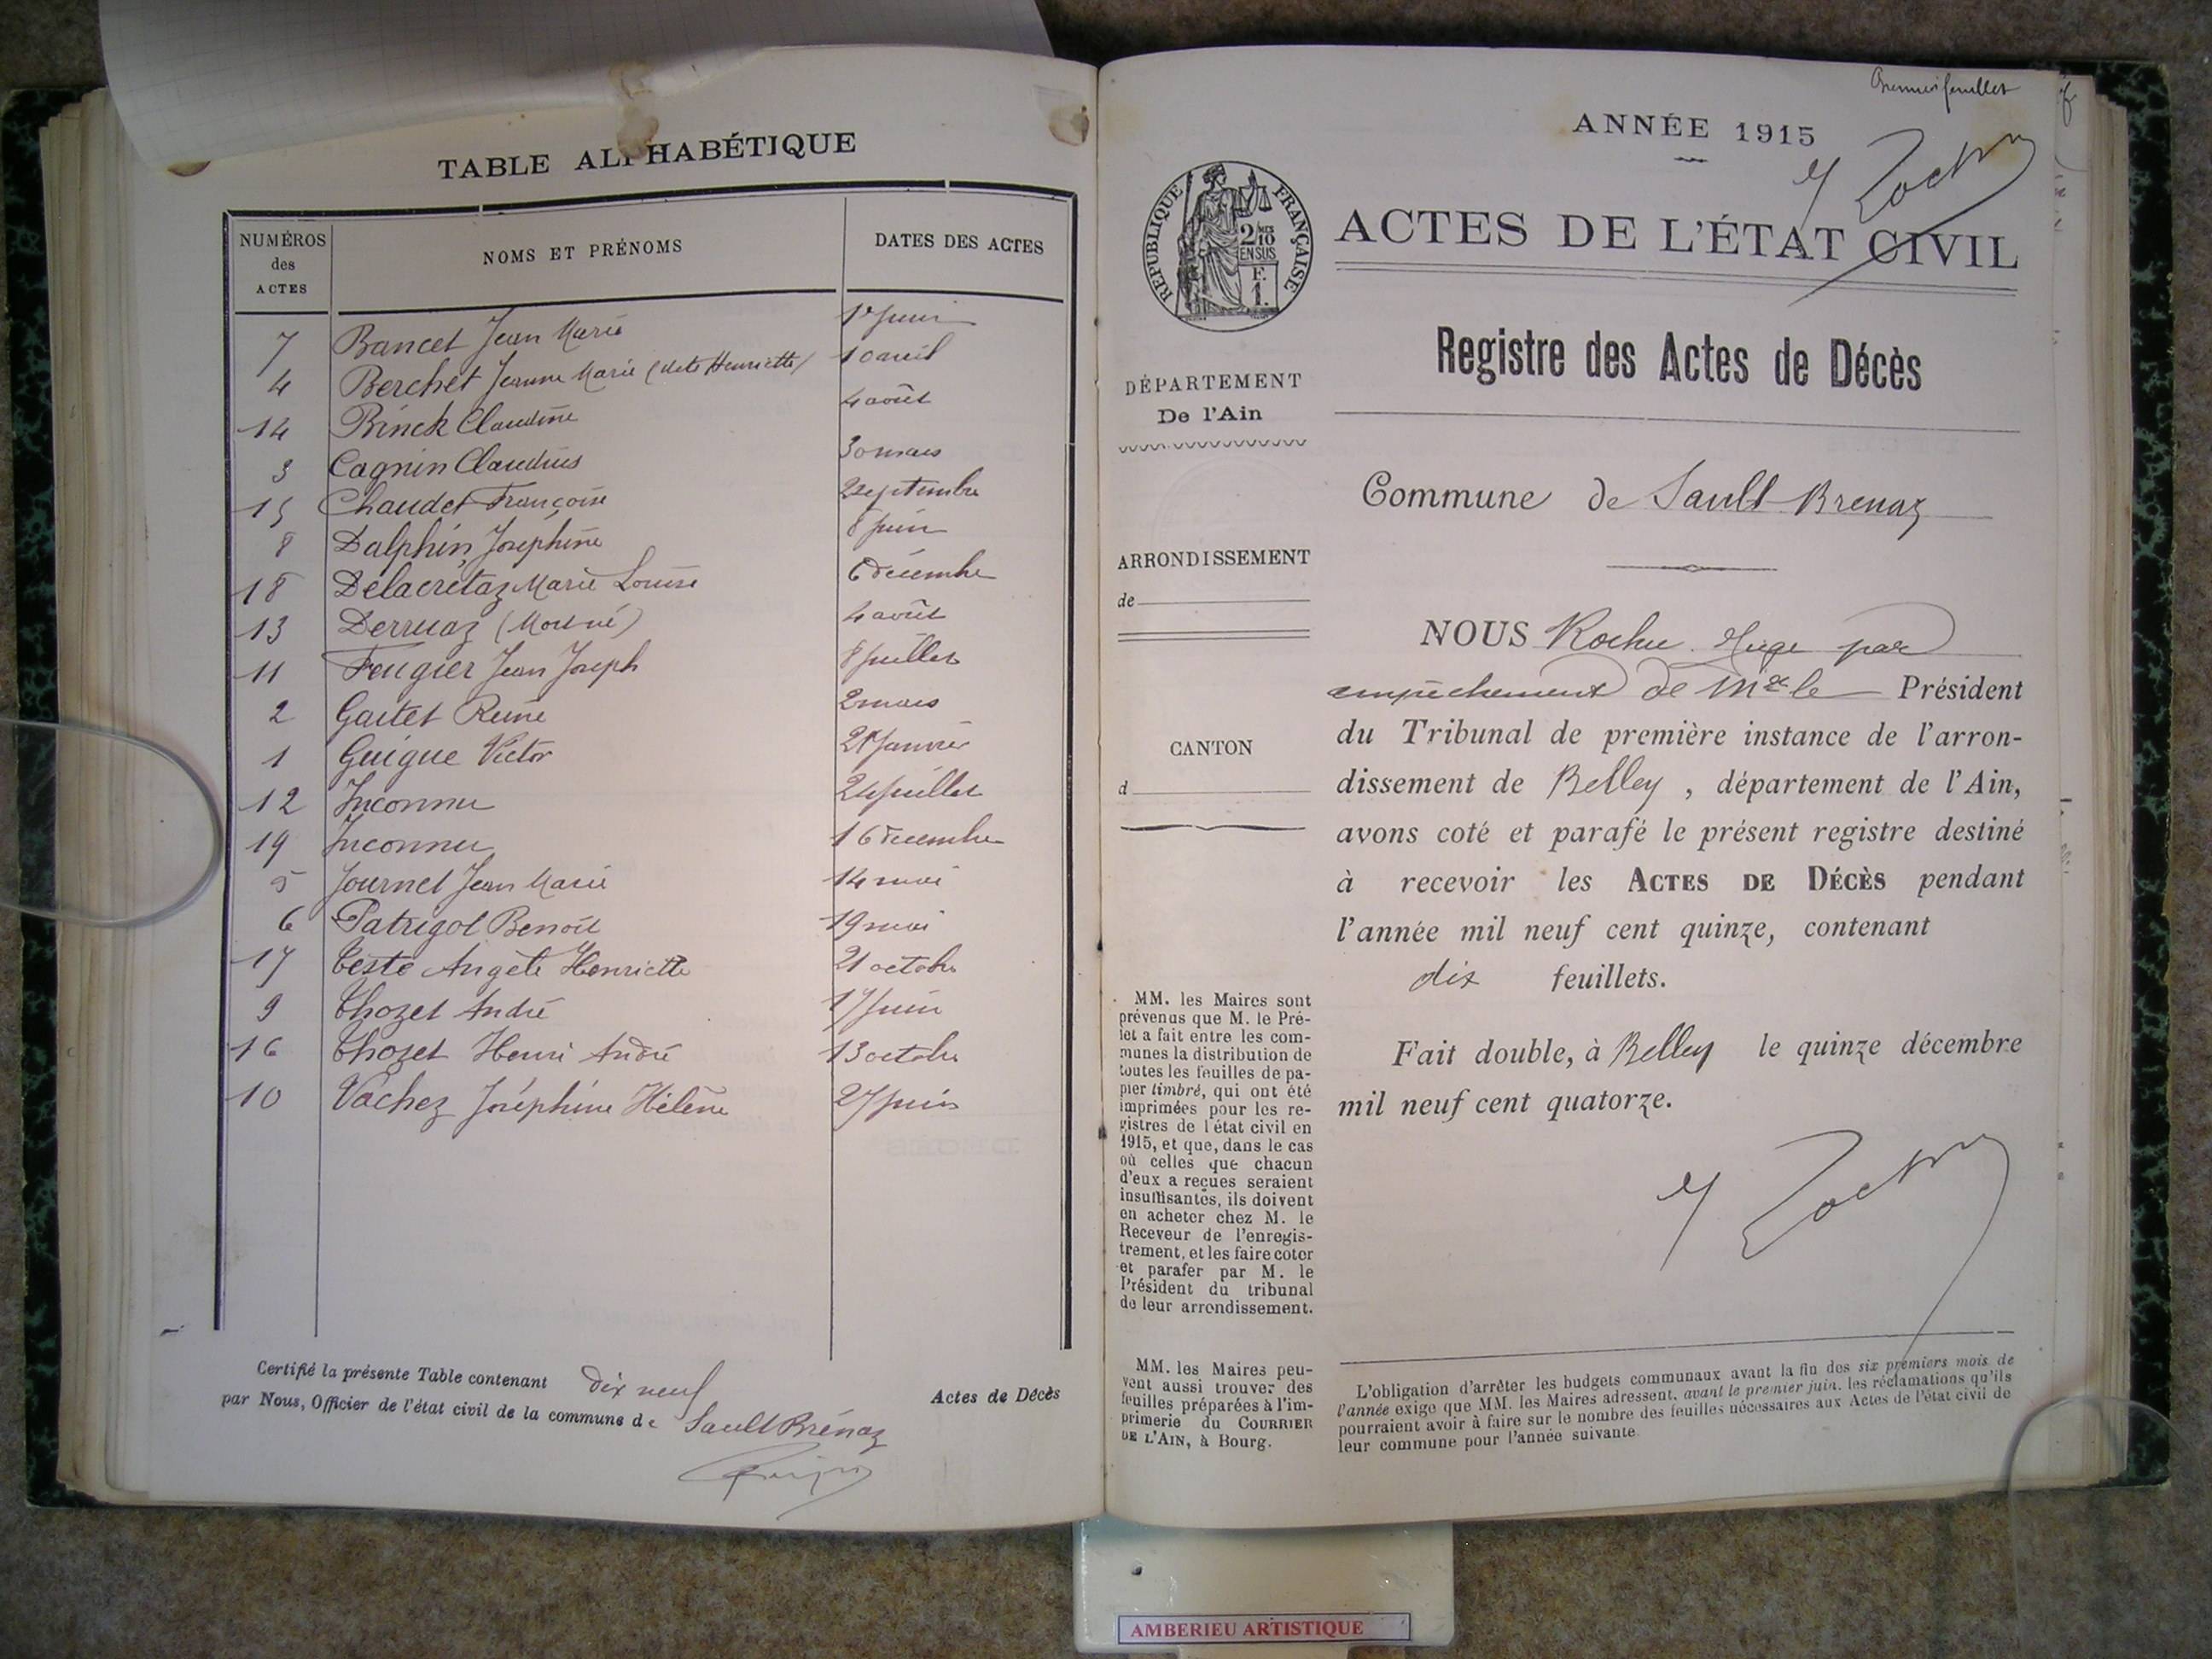 TABLE ALPHABÉTIQUE
NUMÉROS des ACTES
NOMS ET PRÉNOMS
DATES DES ACTES
7 Bancet Jean Marie 1er Juin
4 Berchet Jeanne Marie (dite Henriette) 10 avril
14 Brinck Claudine 4 août
3 Cagnin Claudius 30 mars
15 Chaudet Françoise 2 septembre
8 Dalphin Joséphine 8 juin
18 Delacrétaz Marie Louise 6 décembre
13 Derruaz (Mort né) 4 août
11 Feugier Jean Joseph 8 juillet
2 Gaitet Reine 2 mars
1 Guigue Victor Janvier
12 Inconnu 24 juillet
19 Inconnu 16 décembre
5 Journet Jean Marie 14 mai
6 Patrigot Benoît 19 mai
17 Teste Angèle Henriette 21 octobre
9 Thozet André 17 Juin
16 Thozet Henri André 13 octobre
10 Vachez Joséphine Hélène 27 juin
Certifié la présente Table contenant dix neuf Actes de Décès
par Nous, Officier de l'état civil de la commune de Sault Brénaz
Premier feuillet
ANNÉE 1915
RÉPUBLIQUE FRANÇAISE
2/10 EN SUS
F. 1.
ACTES DE L'ÉTAT CIVIL
Registre des Actes de Décès
DÉPARTEMENT
De l'Ain
Commune de Sault-Brenaz
ARRONDISSEMENT
de
CANTON
d
NOUS Rochu Juge par
empêchement de Mr le Président
du Tribunal de première instance de l'arron-
dissement de Belley, département de l'Ain,
avons coté et parafé le présent registre destiné
à recevoir les ACTES DE DÉCÈS pendant
l'année mil neuf cent quinze, contenant
dix feuillets.
Fait double, à Belley le quinze décembre
mil neuf cent quatorze.
MM. les Maires sont
prévenus que M. le Pré-
fet a fait entre les com-
munes la distribution de
toutes les feuilles de pa-
pier timbré, qui ont été
imprimées pour les re-
gistres de l'état civil en
1915, et que, dans le cas
où celles que chacun
d'eux a reçues seraient
insuffisantes, ils doivent
en acheter chez M. le
Receveur de l'enregis-
trement, et les faire coter
et parafer par M. le
Président du tribunal
de leur arrondissement.
MM. les Maires peu-
vent aussi trouver des
feuilles préparées à l'im-
primerie du COURRIER
DE L'AIN, à Bourg.
L'obligation d'arrêter les budgets communaux avant la fin des six premiers mois de
l'année exige que MM. les Maires adressent, avant le premier juin, les réclamations qu'ils
pourraient avoir à faire sur le nombre des feuilles nécessaires aux Actes de l'état civil de
leur commune pour l'année suivante.
AMBERIEU ARTISTIQUE